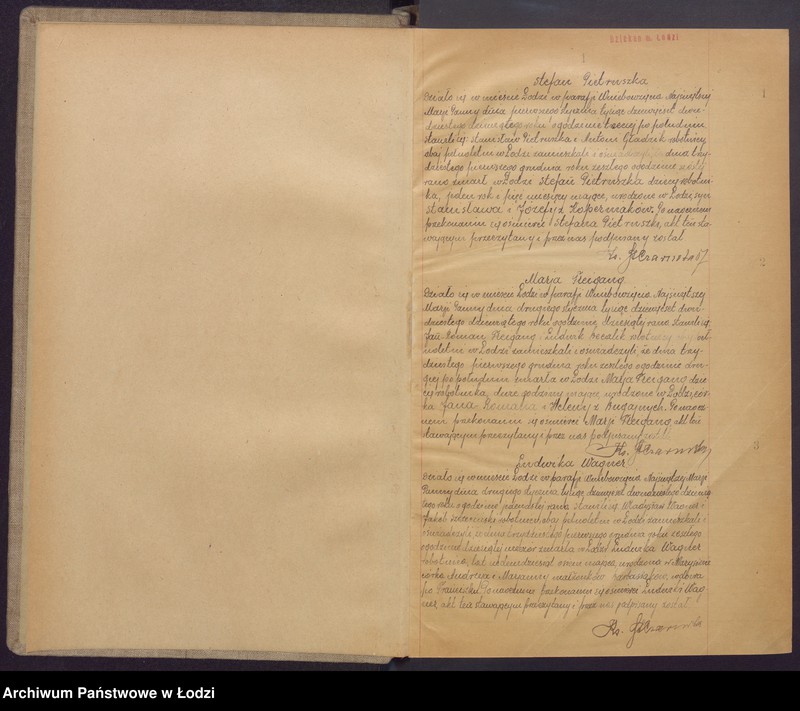 1
Stefan Pietruszka
1
Działo się w mieście Łodzi w parafji Wniebowzięcia Najświętszej
Marji Panny dnia pierwszego stycznia tysiąc dziewięćset dwu-
dziestego roku o godzinie trzeciej po południu
Stawili się Stanisław Pietruszka i Antoni robotnicy
obaj pełnoletni w Łodzi zamieszkali i dnia trzy-
dziestego pierwszego grudnia roku zeszłego o godzinie
rano zmarł w Łodzi Stefan Pietruszka dziecię robotni-
ka, jeden rok i pięć miesięcy mające, urodzone w Łodzi, syn
Stanisława i Józefy z Po naocznem
przekonaniu się o śmierci Stefana Pietruszki, akt ten sta-
wającym przeczytany i przez nas podpisany został
Ks.
2
Marja Feigang
Działo się w mieście Łodzi w parafji Wniebowzięcia Najświętszej
Marji Panny dnia drugiego stycznia tysiąc dziewięćset dwu-
dziestego dziewiątego roku o godzinie dziesiątej rano Stawili się
Jan Roman Feigang i Ludwik robotnicy
noletni w Łodzi zamieszkali i oświadczyli, że dnia trzy-
dziestego pierwszego grudnia roku zeszłego o godzinie dru-
giej po południu zmarła w Łodzi Marja Feigang dzie
cię robotnika, dwie godziny mające, urodzone w Łodzi, cór-
ka Jana Romana i Heleny z Bugajnych. Po naocz-
nem przekonaniu się o śmierci Marji Feigang, akt ten
stawającym przeczytany i przez nas podpisany został
Ks.
3
Ludwika Wagner
Działo się w mieście Łodzi w parafji Wniebowzięcia Najświętszej Marji
Panny dnia drugiego stycznia tysiąc dziewięćset dwudziestego dziewią-
tego roku o godzinie rano Stawili się Władysław Wagner i
Jakób robotnicy, obaj pełnoletni w Łodzi zamieszkali i
oświadczyli, że dnia trzydziestego pierwszego grudnia roku zeszłego
o godzinie dziesiątej wieczór zmarła w Łodzi Ludwika Wagner
robotnica, lat siedemdziesiąt osiem mająca, urodzona w
córka Andrzeja i Marjanny małżonków wdowa
po Franciszku. Po naocznem przekonaniu się o śmierci Ludwiki Wag
ner, akt ten stawającym przeczytany i przez nas podpisany został
Ks.
Archiwum Państwowe w Łodzi